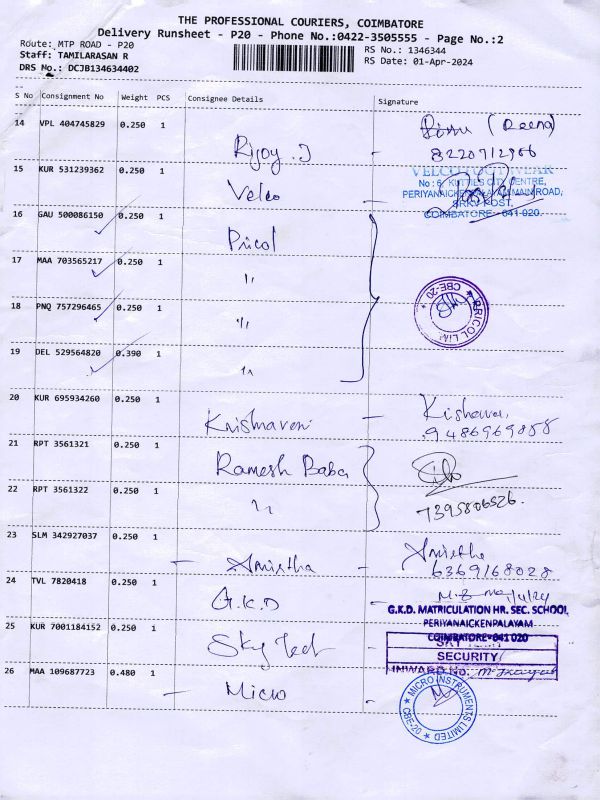 THE PROFESSIONAL COURIERS, COIMBATORE
Delivery Runsheet - P20 - Phone No.:0422-3505555 - Page No.:2
Route: MTP ROAD - P20
RS No.: 1346344
Staff: TAMILARASAN R
RS Date: 01-Apr-2024
DRS No.: DCJB134634402
S No Consignment No Weight PCS Consignee Details Signature
14 VPL 404745829 0.250 1
Rijoy.J - (Reena)
8220712966
15 KUR 531239362 0.250 1
Velco -
VELCO FOOTWEAR
No: 6, KUTTIES CITI CENTRE,
PERIYANAICKENPALAYAM MAIN ROAD,
SRKV POST,
COIMBATORE - 641 020.
16 GAU 500086150 0.250 1
Pricol
17 MAA 703565217 0.250 1
"
18 PNQ 757296465 0.250 1
"
PRICOL LIM
CBE-20
19 DEL 529564820 0.390 1
"
20 KUR 695934260 0.250 1
Krishnaveni -
9486969858
21 RPT 3561321 0.250 1
Ramesh Babu
22 RPT 3561322 0.250 1
"
7395806526.
23 SLM 342927037 0.250 1
- Amirtha - Amirtha
6369168028
24 TVL 7820418 0.250 1
G.K.D -
G.K.D. MATRICULATION HR. SEC. SCHOOL
PERIYANAICKENPALAYAM
COIMBATORE-641 020
25 KUR 7001184152 0.250 1
Sky Tech -
SECURITY
INWARD No.
26 MAA 109687723 0.480 1
- Micro -
MICRO INSTRUMENTS LIMITED
CBE-20